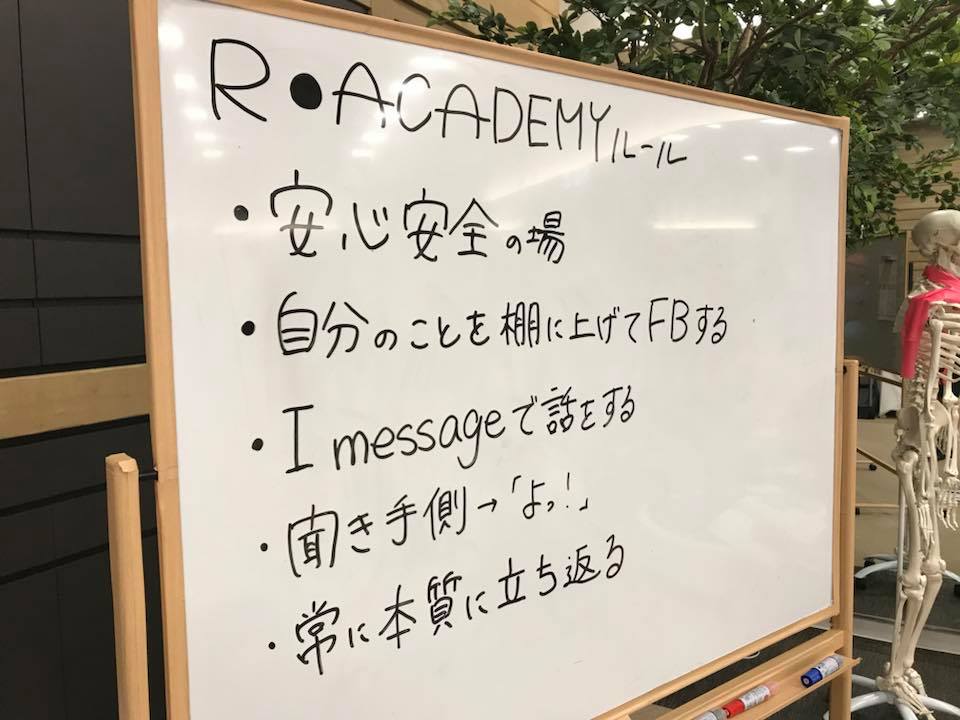 R●ACADEMYルール
・安心安全の場
・自分のことを棚に上げてFBする
・I messageで話をする
・聞き手側→「よっ!」
・常に本質に立ち返る